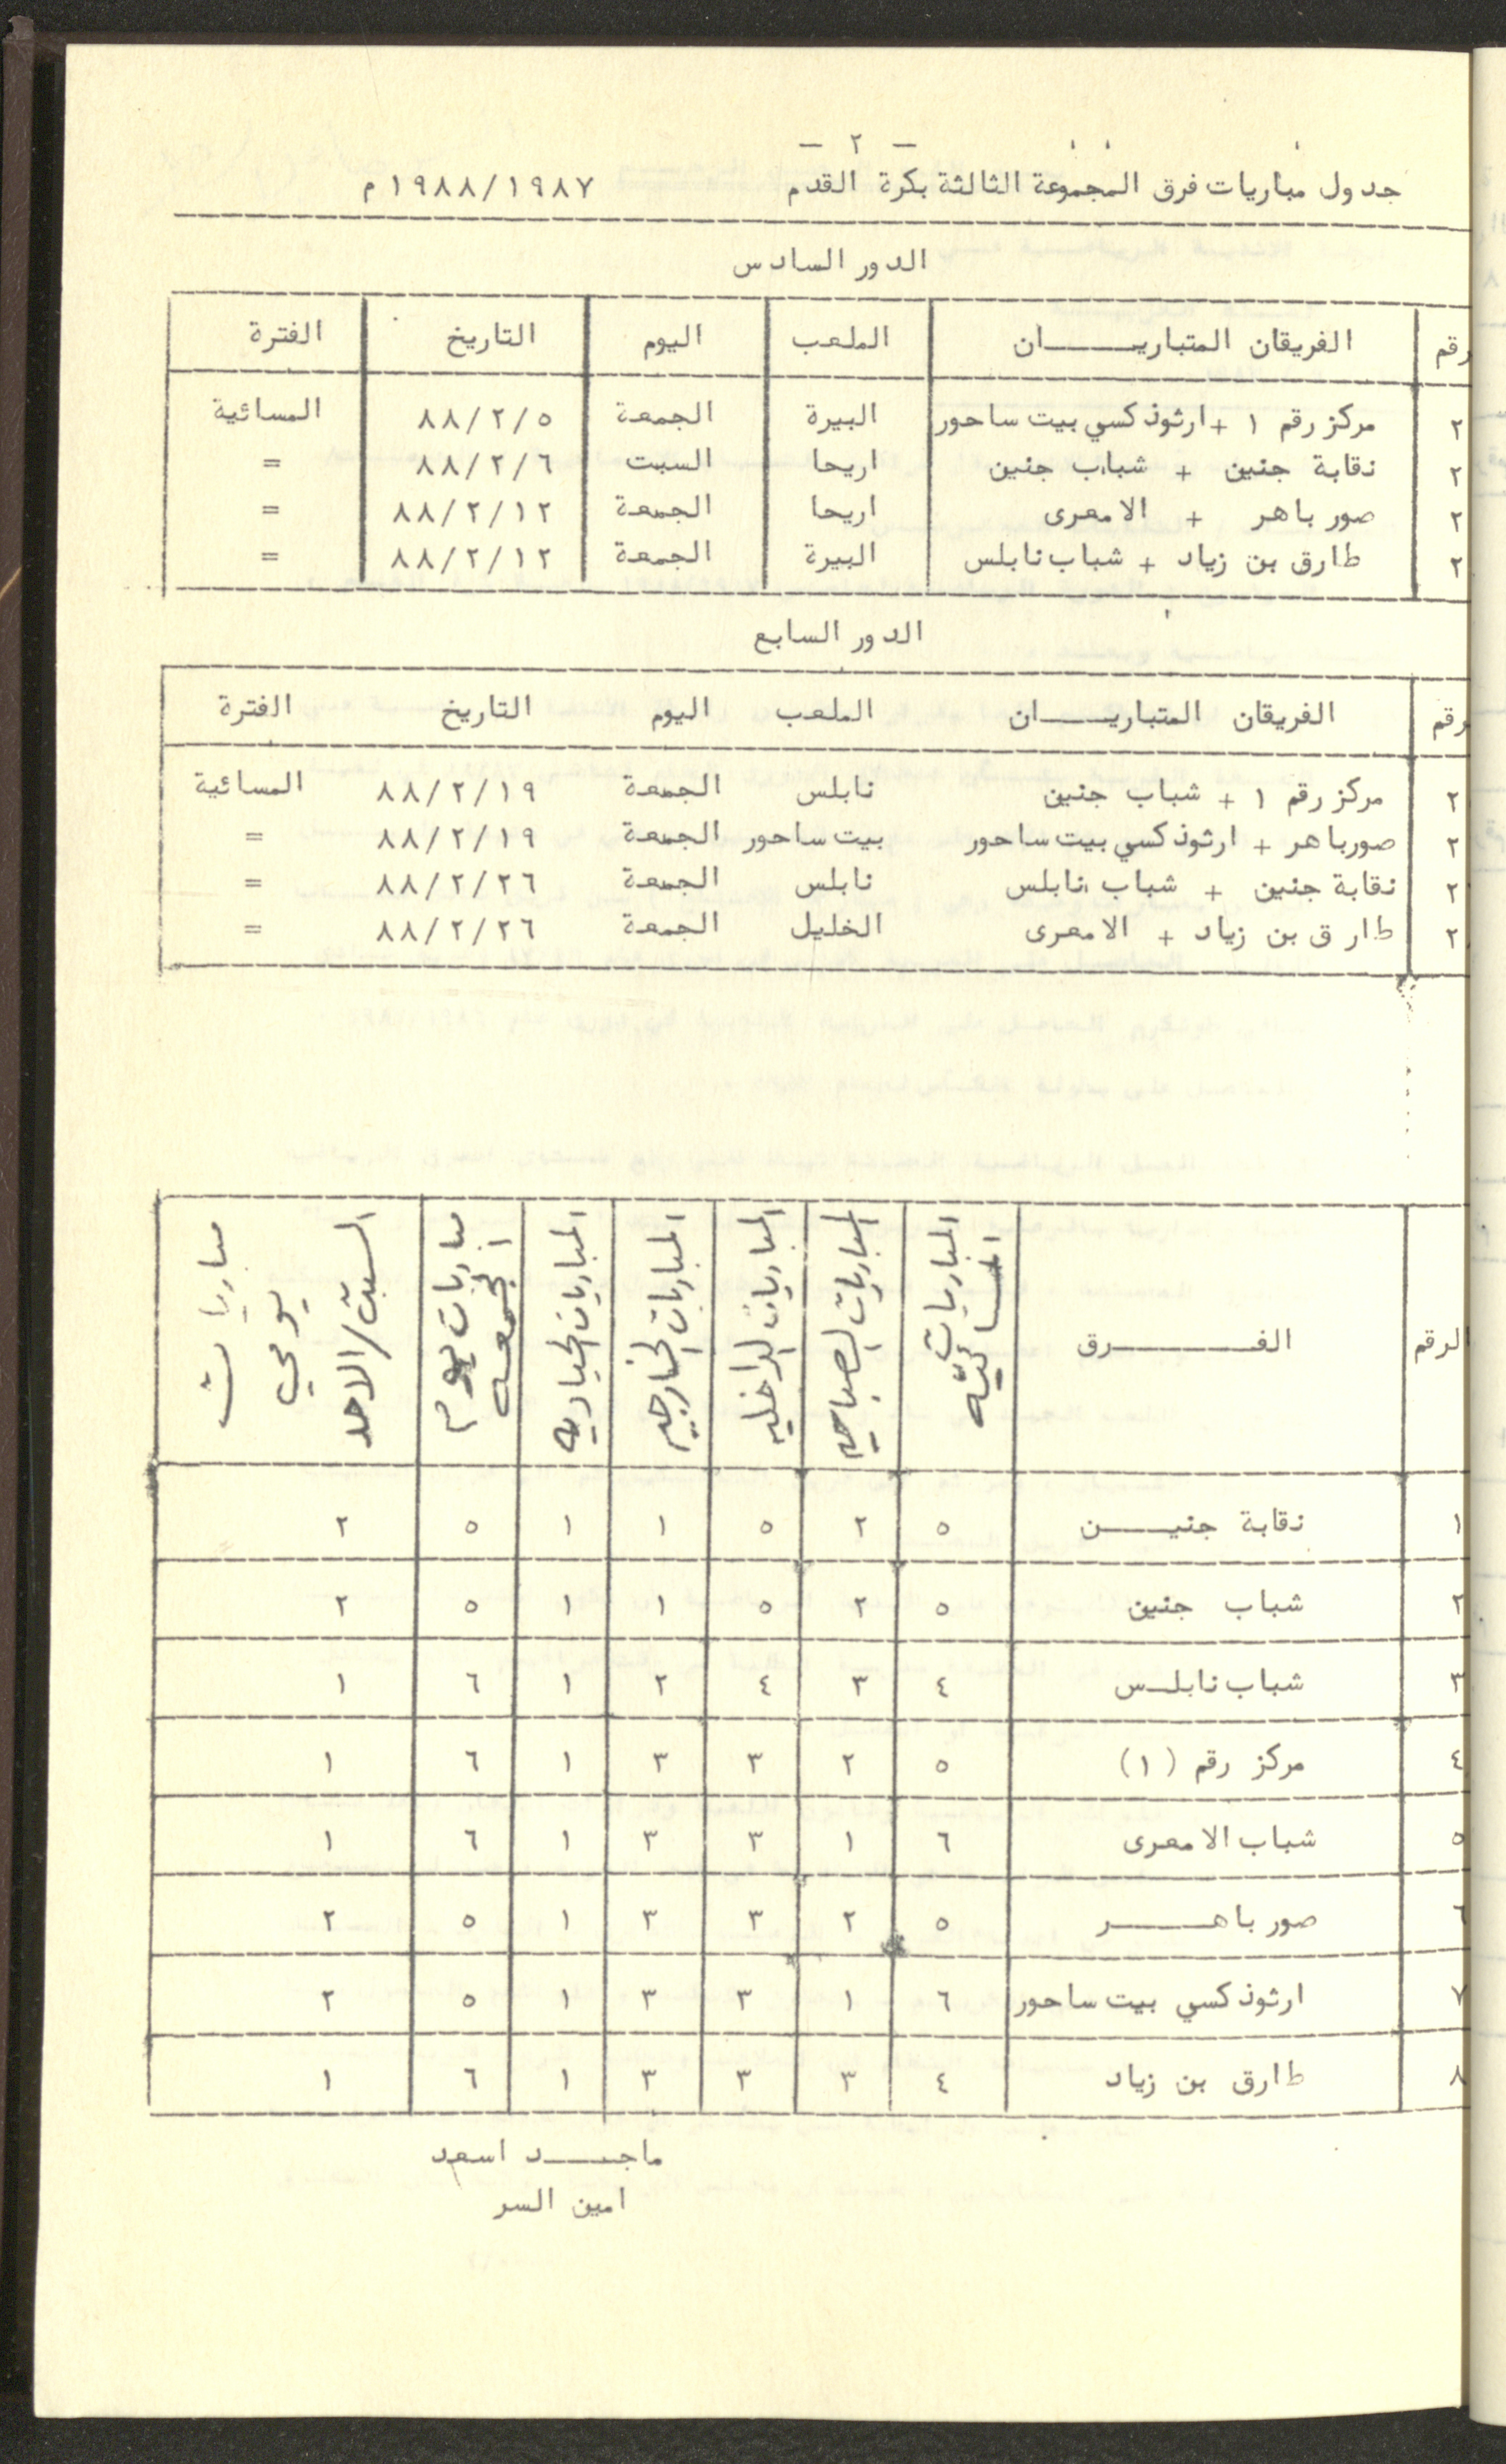 - ٢ -
جدول مباريات فرق المجموعة الثالثة بكرة القدم ١٩٨٨/١٩٨٧م
الدور السادس
رقم الفريقان المتباريـــــان الملعب اليوم التاريخ الفترة
٢ مركز رقم ١ + ارثوذكسي بيت ساحور البيرة الجمعة ٨٨/٢/٥ المسائية
٢ نقابة جنين + شباب جنين اريحا السبت ٨٨/٢/٦ =
٢ صور باهر + الامعرى اريحا الجمعة ٨٨/٢/١٢ =
٢ طارق بن زياد + شباب نابلس البيرة الجمعة ٨٨/٢/١٢ =
الدور السابع
رقم الفريقان المتباريـــــان الملعب اليوم التاريخ الفترة
٢ مركز رقم ١ + شباب جنين نابلس الجمعة ٨٨/٢/١٩ المسائية
٢ صورباهر + ارثوذكسي بيت ساحور بيت ساحور الجمعة ٨٨/٢/١٩ =
٢ نقابة جنين + شباب نابلس نابلس الجمعة ٨٨/٢/٢٦ =
٢ طارق بن زياد + الامعرى الخليل الجمعة ٨٨/٢/٢٦ =
الرقم الفـــــــرق المباريات المسائيه المباريات الصباحيه المباريات الداخليه المباريات الخارجيه المباريات الحياديه مباريات يوم الجمعه مباريات يومي السبت/الاحد
١ نقابة جنيـــــن ٥ ٢ ٥ ١ ١ ٥ ٢
٢ شباب جنين ٥ ٢ ٥ ١ ١ ٥ ٢
٣ شباب نابلـس ٤ ٣ ٤ ٢ ١ ٦ ١
٤ مركز رقم (١) ٥ ٢ ٣ ٣ ١ ٦ ١
٥ شباب الامعرى ٦ ١ ٣ ٣ ١ ٦ ١
٦ صور باهـــــر ٥ ٢ ٣ ٣ ١ ٥ ٢
٧ ارثوذكسي بيت ساحور ٦ ١ ٣ ٣ ١ ٥ ٢
٨ طارق بن زياد ٤ ٣ ٣ ٣ ١ ٦ ١
ماجـــــد اسعد
امين السر